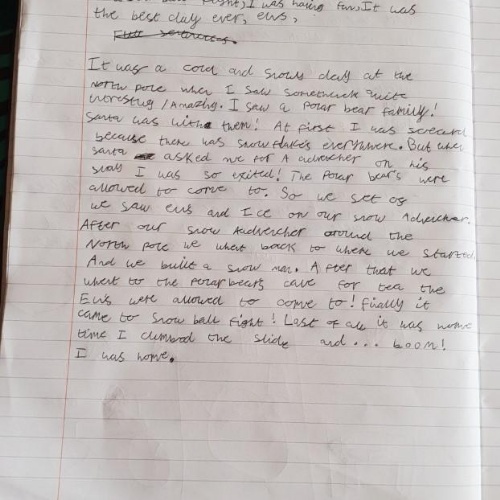 ball fight, I was having fun, It was
the best day ever, elvs,
Full sentences.
It was a cold and snowy day at the
North pole when I saw somethenk quite
intresting / Amazing. I saw a Polar bear family!
Santa was with them! At first I was screced
because there was snow flakes everywhere. But when
santa asked me for A advencher on his
slay I was so exited! The Polar bear's were
allowed to come to. So we set of
we saw elvs and Ice on our snow Advencher.
After our snow Advencher around the
North Pole we whent back to where we started.
And we built a snow man. After that we
whent to the Polar bear's cave for tea the
Elvs were allowed to come to! finally it
came to snow ball fight! Last of all it was home
time I climbed the slide and... boom!
I was home.